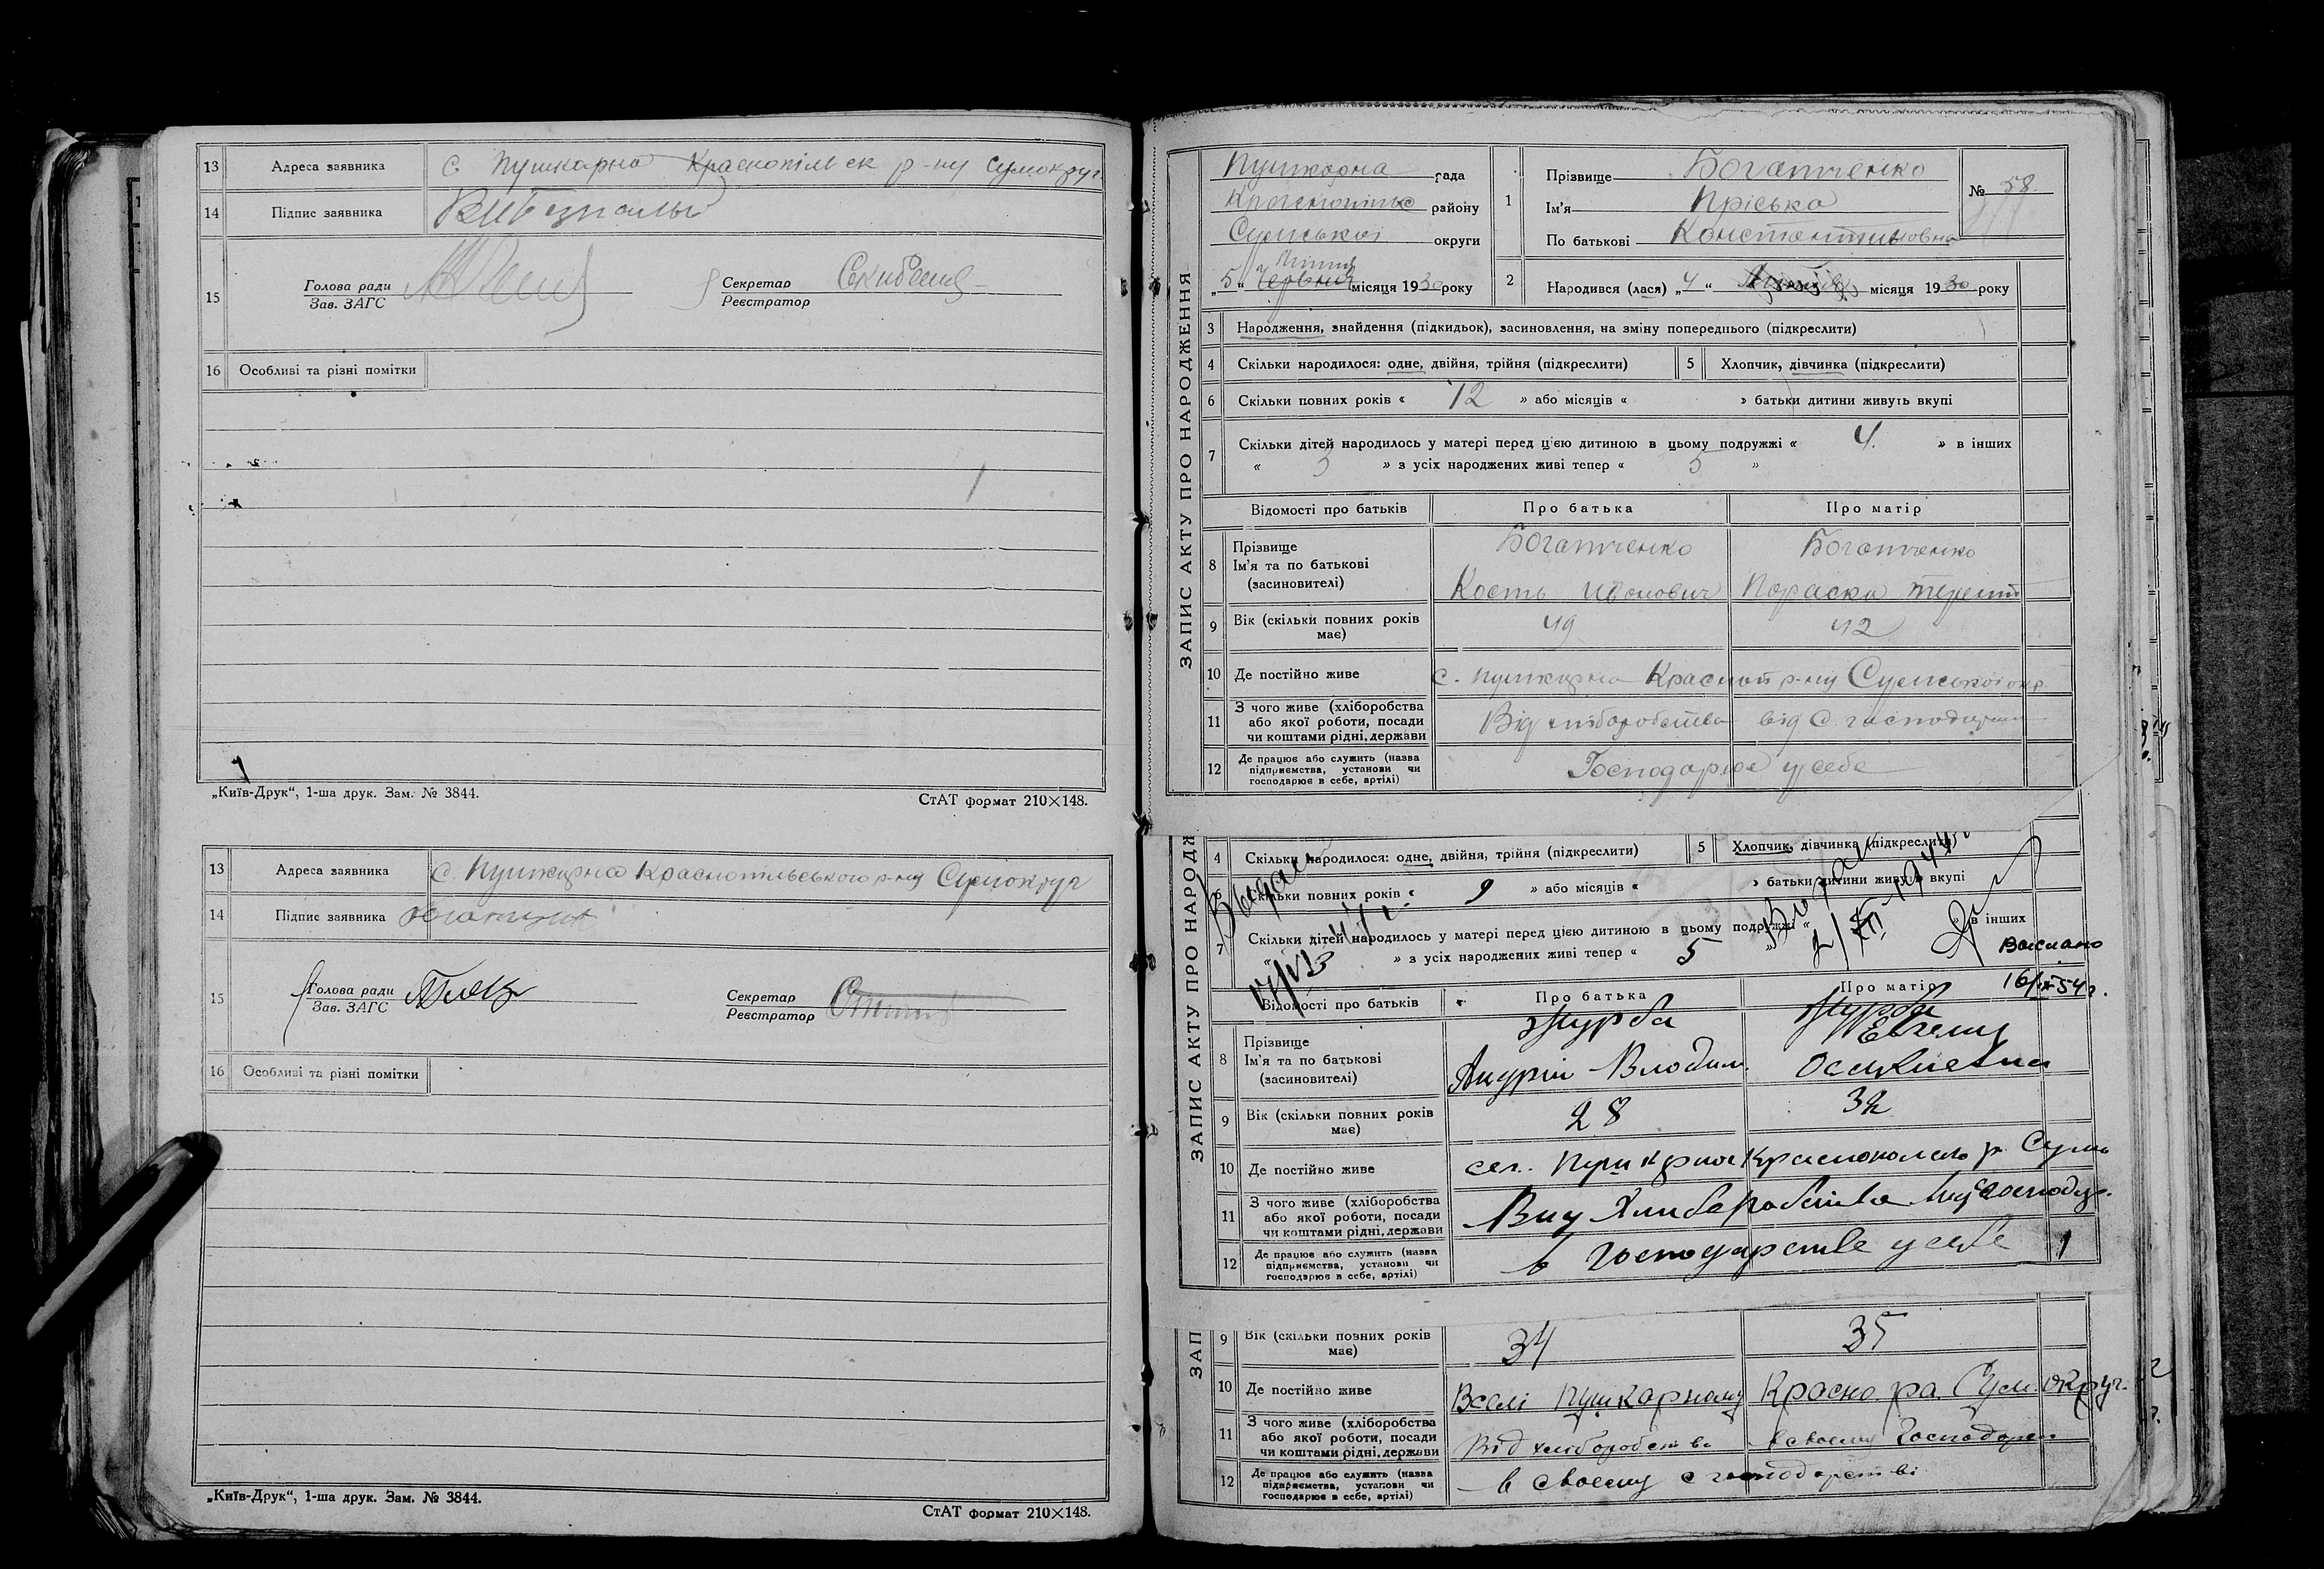 13 Адреса заявника с Пушкарна Краснопільск р-ну Сумокруг
14 Підпис заявника
15 Голова ради Секретар
Зав. ЗАГС Реєстратор
16 Особливі та різні помітки
„Київ-Друк“, 1-ша друк. Зам. № 3844. СтАТ формат 210×148.
13 Адреса заявника с. Пушкарна Краснопильського р-ну Сумокруг
14 Підпис заявника
15 Голова ради Секретар
Зав. ЗАГС Реєстратор
16 Особливі та різні помітки
„Київ-Друк“, 1-ша друк. Зам. № 3844. СтАТ формат 210×148.
ЗАПИС АКТУ ПРО НАРОДЖЕННЯ
Пушкарна рада
району
Сумської округи
„5“ Червня місяця 1930 року
Липня
1 Прізвище Богатченко
Ім'я Пріська
По батькові Константиновна
№ 58.
2 Народився (лася) „4“ місяця 1930 року
3 Народження, знайдення (підкидьок), засиновлення, на зміну попереднього (підкреслити)
4 Скільки народилося: одне, двійня, трійня (підкреслити) 5 Хлопчик, дівчинка (підкреслити)
6 Скільки повних років « 12 » або місяців « » батьки дитини живуть вкупі
7 Скільки дітей народилось у матері перед цією дитиною в цьому подружжі « 4. » в інших
« 3 » з усіх народжених живі тепер « 5 »
Відомості про батьків Про батька Про матір
8 Прізвище Богатченко Богатченко
Ім'я та по батькові
(засиновителі) Кость Иванович Параска Терент
9 Вік (скільки повних років має) 49 42
10 Де постійно живе с. Пушкарна Красноп р-ну Сумської окр.
11 З чого живе (хліборобства
або якої роботи, посади Від хліборобства від С. господарства
чи коштами рідні, держави
12 Де працює або служить (назва
підприємства, установи чи Господарює у себе
господарює в себе, артілі)
ЗАПИС АКТУ ПРО НАРОДЖ
4 Скільки народилося: одне, двійня, трійня (підкреслити) 5 Хлопчик, дівчинка (підкреслити)
6 Скільки повних років « 9 » або місяців « » батьки дитини живуть вкупі
7 Скільки дітей народилось у матері перед цією дитиною в цьому подружжі « » в інших
« 3 » з усіх народжених живі тепер « 5 »
Выдан
Відомості про батьків Про батька Про матір
8 Прізвище Журба Журба
Ім'я та по батькові Евгени
(засиновителі) Андрій Володим.
9 Вік (скільки повних років має) 28 32
10 Де постійно живе сел. Пушкарное р. Сум
11 З чого живе (хліборобства
або якої роботи, посади
чи коштами рідні, держави
12 Де працює або служить (назва
підприємства, установи чи в господарстве у себе 1
господарює в себе, артілі)
ЗАП
9 Вік (скільки повних років має) 34 35
10 Де постійно живе Вселі Пушкарному Красно ра. Сум. округ.
11 З чого живе (хліборобства
або якої роботи, посади
чи коштами рідні, держави Від хліборобства
12 Де працює або служить (назва
підприємства, установи чи в своему с господарстві
господарює в себе, артілі)